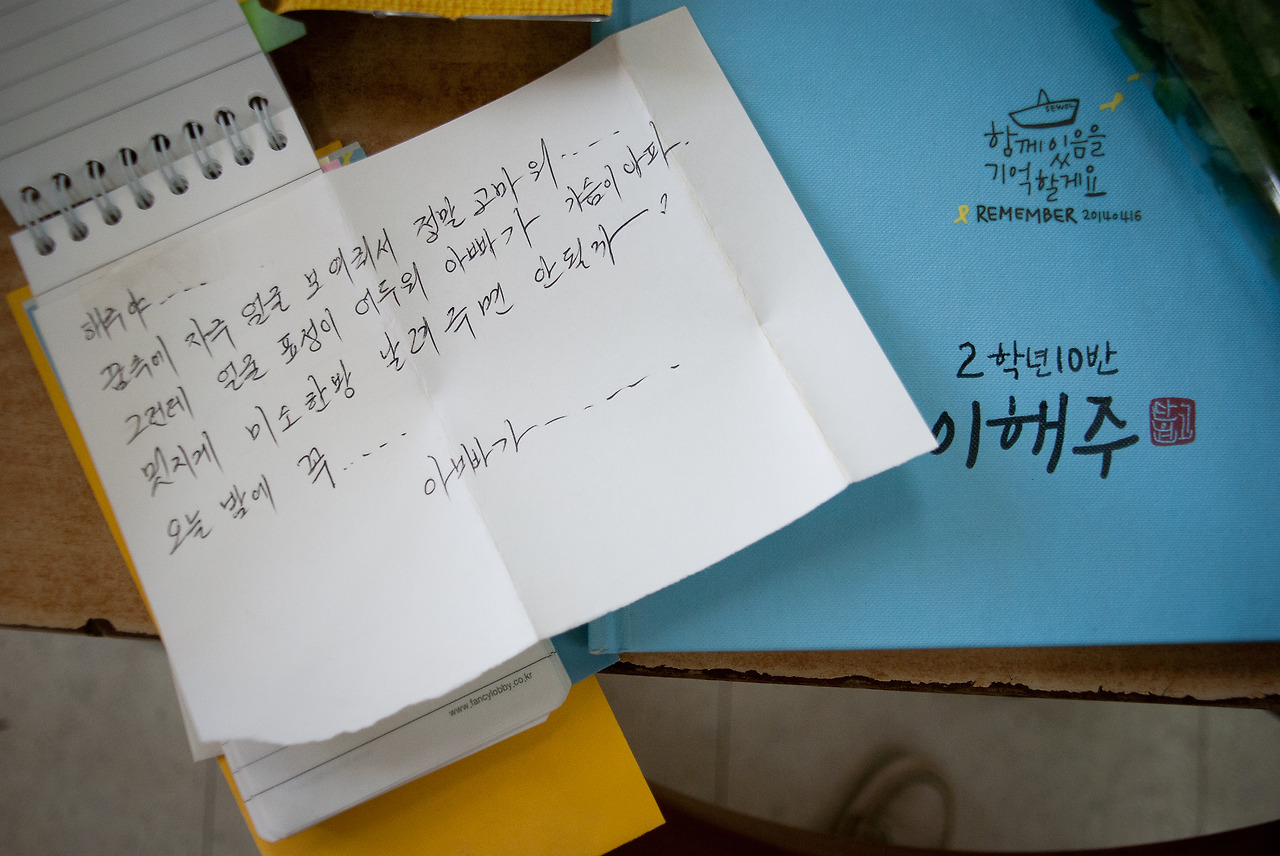 해주야....
꿈속에 자주 얼굴 보여줘서 정말 고마워...
그런데 얼굴 표정이 어두워 아빠가 가슴이 아파.
멋지게 미소한방 날려주면 안될까?
오늘 밤에 꼭....
아빠가......
www.fancylobby.co.kr
SEWOL
함께 있음을
기억할게요
REMEMBER 20140416
2학년 10반
이해주